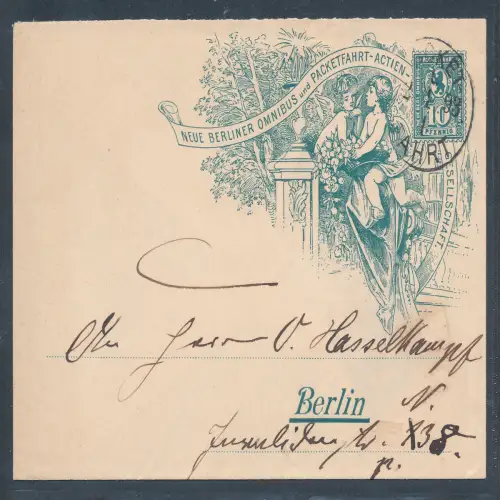 NEUE BERLINER OMNIBUS und PACKETFAHRT-ACTIEN-
SELLSCHAFT.
10
PFENNIG
AHRT.
An Herrn O. Hasselkampf
Berlin N.
Invalidenstr. 138.
p.